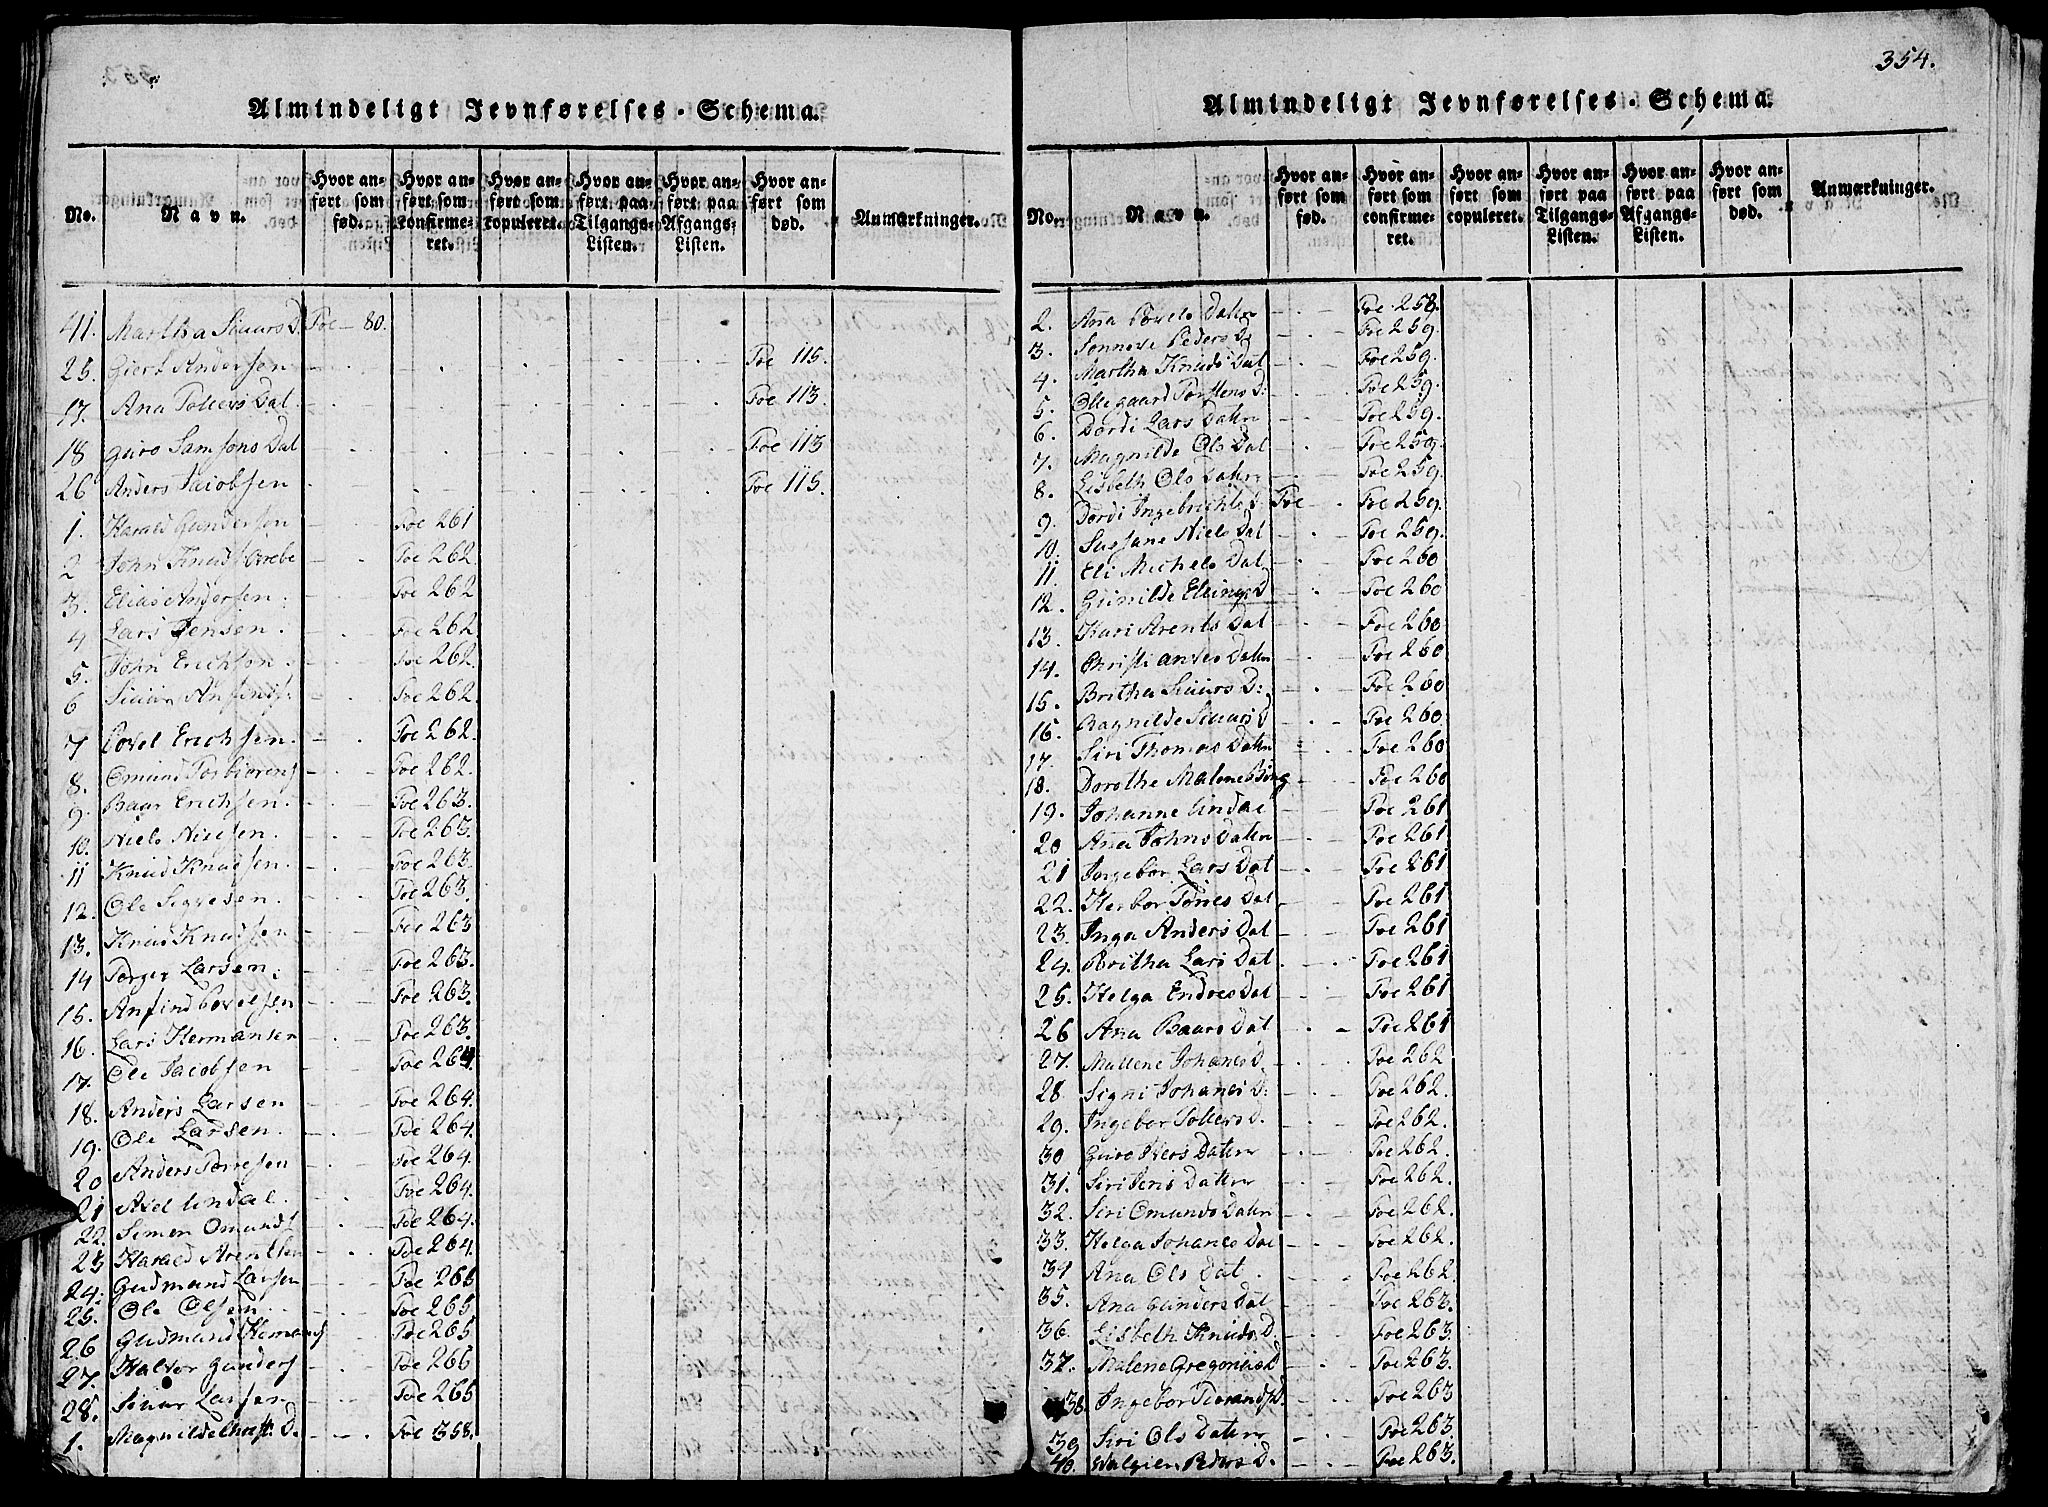 354.
Almindeligt Jevnførelses-Schema.
No. Navn. Hvor anført som fød. Hvor anført som confirmeret. Hvor anført som copuleret. Hvor anført paa Tilgangs-Listen. Hvor anført paa Afgangs-Listen. Hvor anført som død. Anmærkninger.
41. Martha Siuurs D. Foe - 80.
25. Giert Andersen Foe 115.
17. Ana Tollers Dat. Foe 113.
18 Guro Samsons Dat Foe 113
26 Anders Jacobsen Foe 115.
1. Harald Gundersen Foe 261
2 John Knuds Foe 262
3. Elias Andersen. Foe 262
4 Lars Jensen. Foe 262.
5. John Erichson. Foe 262.
6 Siuur Foe 262.
7 Povel Erichsen. Foe 262.
8. Omund Torbiørens Foe 262.
9. Baar Erichsen. Foe 263.
10. Niels Nielsen. Foe 263.
11 Knud Knudsen. Foe 263.
12. Ole Siguesen. Foe 263.
13. Knud Knudsen Foe 263
14 Torger Larsen. Foe 263.
15. Anfind Povelsen Foe 263.
16. Lars Hermansen Foe 263.
17. Ole Jacobsen Foe 264.
18. Anders Larsen Foe 264.
19. Ole Larsen. Foe 264.
20 Anders Torresen Foe 264.
21 Axel Undal. Foe 264.
22. Simen Omunds Foe 264.
23 Harald Arentsen Foe 264.
24. Gudmund Larsen Foe 265
25. Ole Olsen. Foe 265.
26 Gudmund Foe 265
27. Halvor Gunders Foe 266
28. Siuur Larsen Foe 265
1. Magnilde D. Foe 358.
Almindeligt Jevnførelses-Schema.
No. Navn. Hvor anført som fød. Hvor anført som confirmeret. Hvor anført som copuleret. Hvor anført paa Tilgangs-Listen. Hvor anført paa Afgangs-Listen. Hvor anført som død. Anmærkninger.
2. Ana Povels Datter Foe 258.
3. Sønneve Peders D Foe 259.
4. Martha Knuds Dat Foe 259.
5. Ollegaard Torstens D: Foe 259.
6. Dordi Lars Datter Foe 259.
7. Magnilde Ols Dat Foe 259.
8. Lisbeth Ols Datter Foe 259.
9. Dordi Ingebrichts D: Foe Foe 259.
10. Sussane Niels Dat Foe 259.
11. Eli Michels Dat Foe 260
12. Gunilde Ellings D Foe 260
13. Kari Arents Dat Foe 260
14. Datter Foe 260
15. Britha Siuurs D: Foe 260
16. Ragnilde Siuurs D Foe 260
17. Siri Thomas Datter Foe 260
18. Dorothe Malene Bing Foe 260
19. Johanne Undal Foe 261
20 Ana Johns Datter Foe 261
21 Ingebor Lars Dat Foe 261
22. Herbor Tønes Dat Foe 261
23. Inga Anders Dat Foe 261
24. Britha Lars Dat Foe 261
25. Helga Endres Dat Foe 261
26 Ana Baars Dat Foe 261
27. Mallene Johanes D. Foe 262
28. Signi Johanes D: Foe 262.
29. Ingebor Tollers D. Foe 262.
30 Guro Ivers Datter Foe 262.
31. Siri Jens Datter Foe 262.
32. Siri Omunds Datter Foe 262.
33. Helga Johanes Dat Foe 262.
34 Ana Ols Dat. Foe 262.
35. Ana Gunders Dat Foe 263.
36. Lisbeth Knuds D. Foe 263.
37. Malene Gregorius D Foe 263.
38. Ingebor D. Foe 263
39 Siri Ols Datter Foe 263.
40. Peders D. Foe 263.